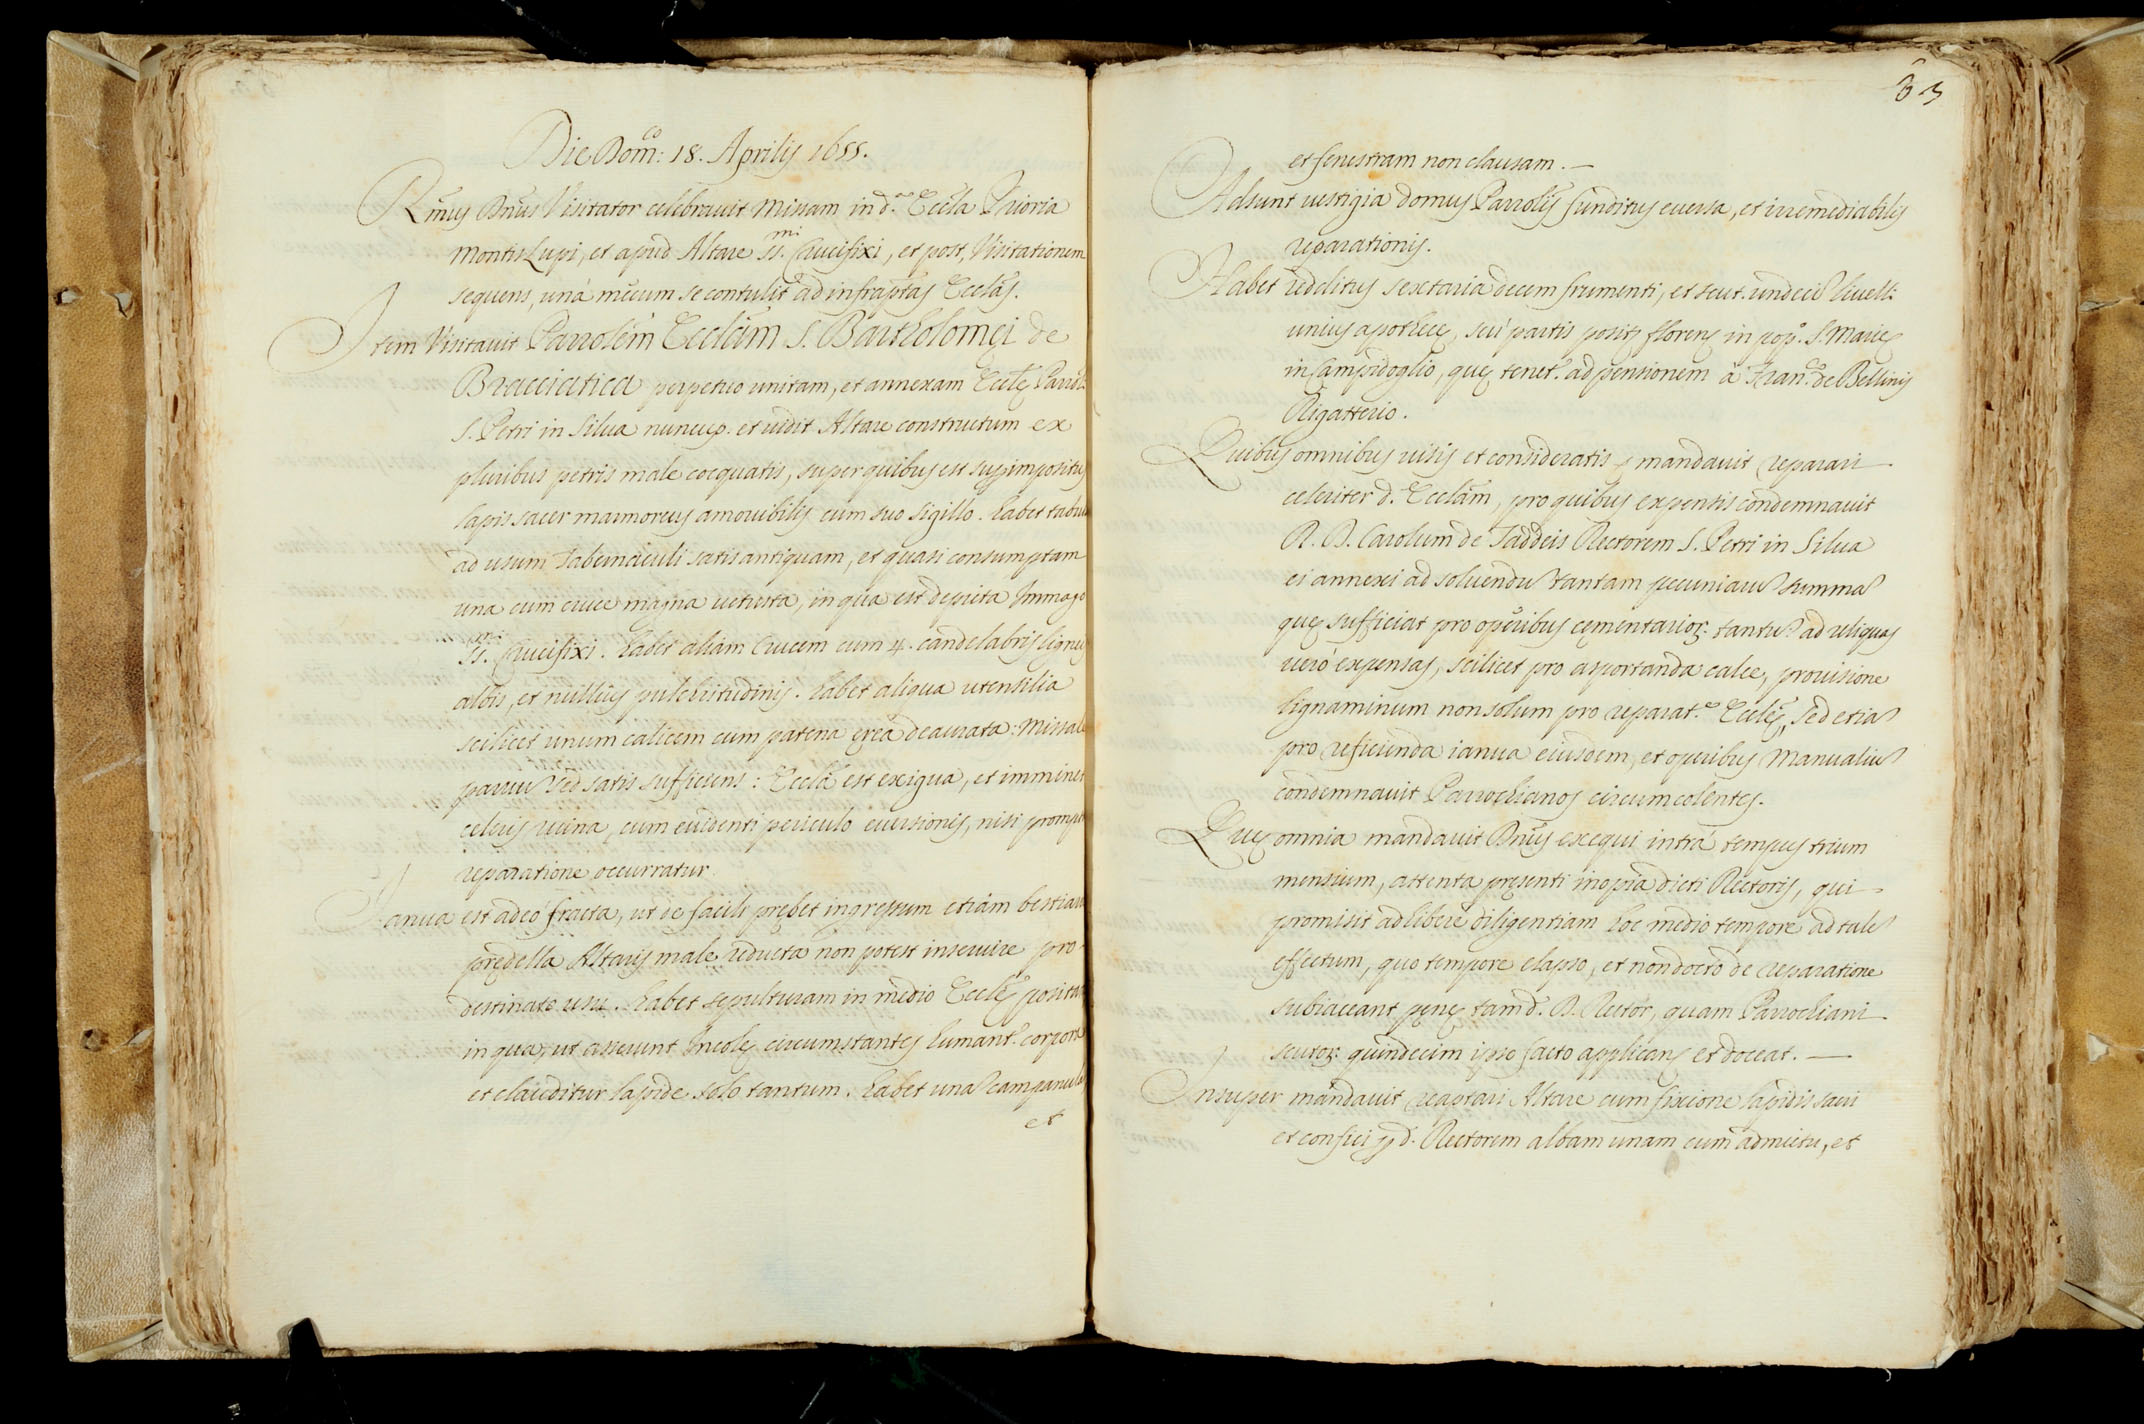 Die Dom:co 18. Aprilis 1655.
Rmus Dnus Visitator celebravit Missam in d.a Eccla Prioria
Montis Lupi, et apud Altare SS.mi Crucifixi, et post, Visitationem
sequens, unà mecum se contulit ad infraptas Ecclas.
Item Visitavit Parrolem Ecclam S. Bartholomei de
Bracciatica perpetuo unitam, et annexam Eccle Parrol:
S. Petri in Silva nuncup. et vidit Altare constructum ex
pluribus petris male coequatis, super quibus est supimpositus
lapis sacer marmoreus amovibilis cum suo sigillo. habet tabulã
ad usum Tabernaculi satis antiquam, et quasi consumptam
una cum cruce magna vetusta, in qua est depicta Immago
SS.mi Crucifixi. habet aliam Crucem cum 4. candelabris ligneis
albis, et nullius pulchritudinis. habet aliqua utensilia
scilicet unum calicem cum patena ęrea deaurata: Missale
parvũ sed satis sufficiens: Eccla est exigua, et imminet
celeris ruina, cum evidenti periculo eversionis, nisi prompta
reparatione occurratur.
Ianua est adeò fracta, ut de facili prębet ingressum etiam bestiarũ
prędella Altaris male reducta non potest inservire pro
destinato usu. habet sepulturam in medio Ecclę positam
in qua, ut asserunt Incolę circumstantes humant.r corpora
et clauditur lapide solo tantum. habet unã campanulã
et
63
et fenestram non clausam. —
Adsunt vestigia domus Parrolis funditus eversa, et irremediabilis
reparationis.
Habet redditus sextaria decem frumenti, et scut. undecĩ livell:
unius apothecę, seù partis positę florens in pop.o S. Marię
in Campidoglio, quę tenet.r ad pensionem à Fran.co de Bellinis
Rigatterio.
Quibus omnibus visis et consideratis, mandavit reparari
celeriter d. Ecclam, pro quibus expensis condemnavit
R. D. Carolum de Taddeis Rectorem S. Petri in Silva
ei annexi ad solvendũ tantam pecuniarũ summã
quę sufficiat pro operibus cęmentarioꝝ: tantũ: ad reliquas
verò expensas, scilicet pro asportanda calce, provisione
lignaminum non solum pro reparat.e Ecclę, sed etiã
pro reficienda ianua eiusdem, et operibus Manualiũ
condemnavit Parrochianos circumcolentes.
Quę omnia mandavit Dnus exequi intrà tempus trium
mensium, attenta pręsenti inopia dicti Rectoris, qui
promisit adhibere diligentiam hoc medio tempore ad talẽ
effectum, quo tempore elapso, et non docto de reparatione
subiaceant pęnę tam d. D. Rector, quam Parrochiani
scutoꝝ: quindecim ipso facto applicans et doceat. —
Insuper mandavit reaptari Altare cum fixione lapidis sacri
et confici ꝑ d. Rectorem albam unam cum admictu, et